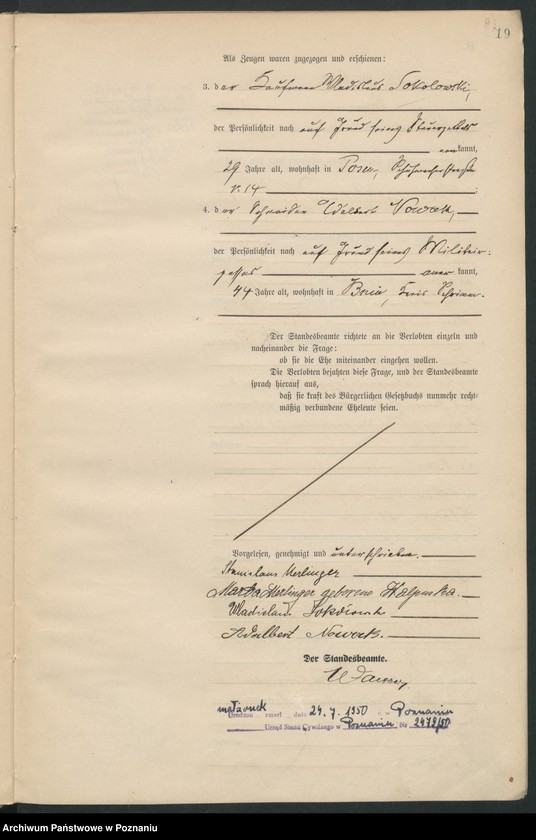 19
Als Zeugen waren zugezogen und erschienen:
3. der Kaufmann Wladislaus Sokolowski,
der Persönlichkeit nach auf Grund seines Steuerzettels
anerkannt,
29 Jahre alt, wohnhaft in Posen,
14
4. der Schneider Adalbert Nowak,
der Persönlichkeit nach auf Grund seines Militär-
passes anerkannt,
44 Jahre alt, wohnhaft in Bnin, Kreis Schrimm.
Der Standesbeamte richtete an die Verlobten einzeln und
nacheinander die Frage:
ob sie die Ehe miteinander eingehen wollen.
Die Verlobten bejahten diese Frage, und der Standesbeamte
sprach hierauf aus,
daß sie kraft des Bürgerlichen Gesetzbuchs nunmehr recht-
mäßig verbundene Eheleute seien.
Vorgelesen, genehmigt und unterschrieben.
Stanislaus Merlinger
Merlinger geborene
Sokolowski
Adalbert Nowak.
Der Standesbeamte.
małżonek
zmarł dnia 24. 7. 1950 Poznaniu
Urząd Stanu Cywilnego w Poznaniu Nr 2472/50
Archiwum Państwowe w Poznaniu